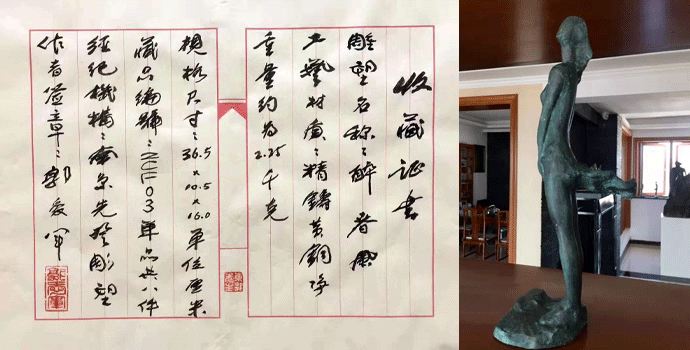 收藏证书
雕塑名称：醉春风
工艺材质：精铸黄铜净
重量约为2.25千克
规格尺寸：36.5×10.5×16.0 单位厘米
藏品编号：NEIF03 单品共八件
经纪机构：南京先登雕塑
作者签章：郭爱军